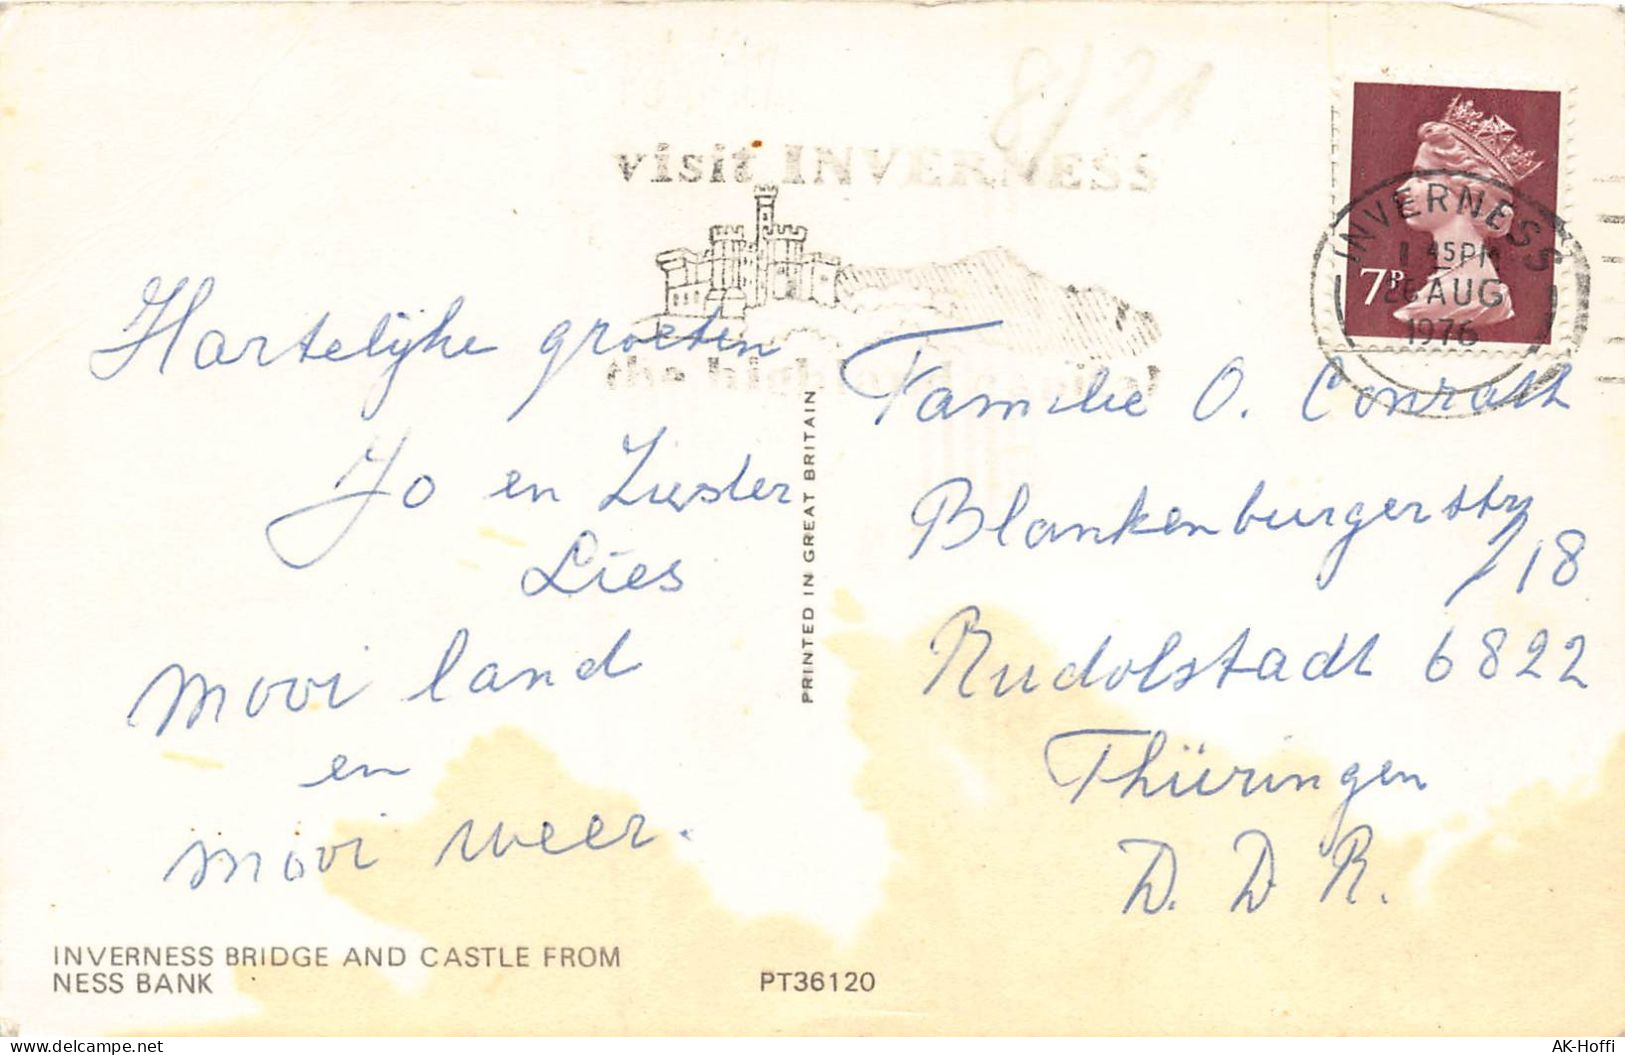 8/21
visit INVERNESS
the highland capital
INVERNESS
1 45PM
26 AUG
1976
7P
Hartelijke groeten
Jo en Zuster
Lies
mooi land
en
mooi weer.
PRINTED IN GREAT BRITAIN
Familie O. Conrath
Blankenburgerstr
18
Rudolstadt 6822
Thüringen
D. D R.
INVERNESS BRIDGE AND CASTLE FROM
NESS BANK
PT36120
AK-Hoffi
delcampe.net